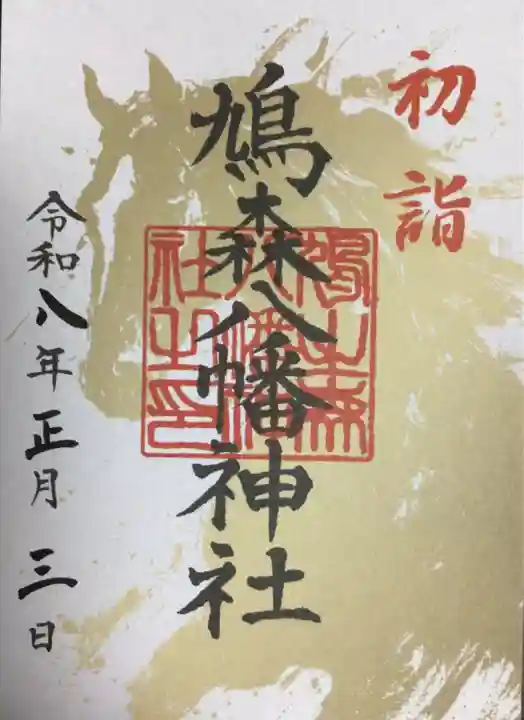 初詣
鳩森八幡神社
鳩之森
八幡神
社之印
令和八年正月三日